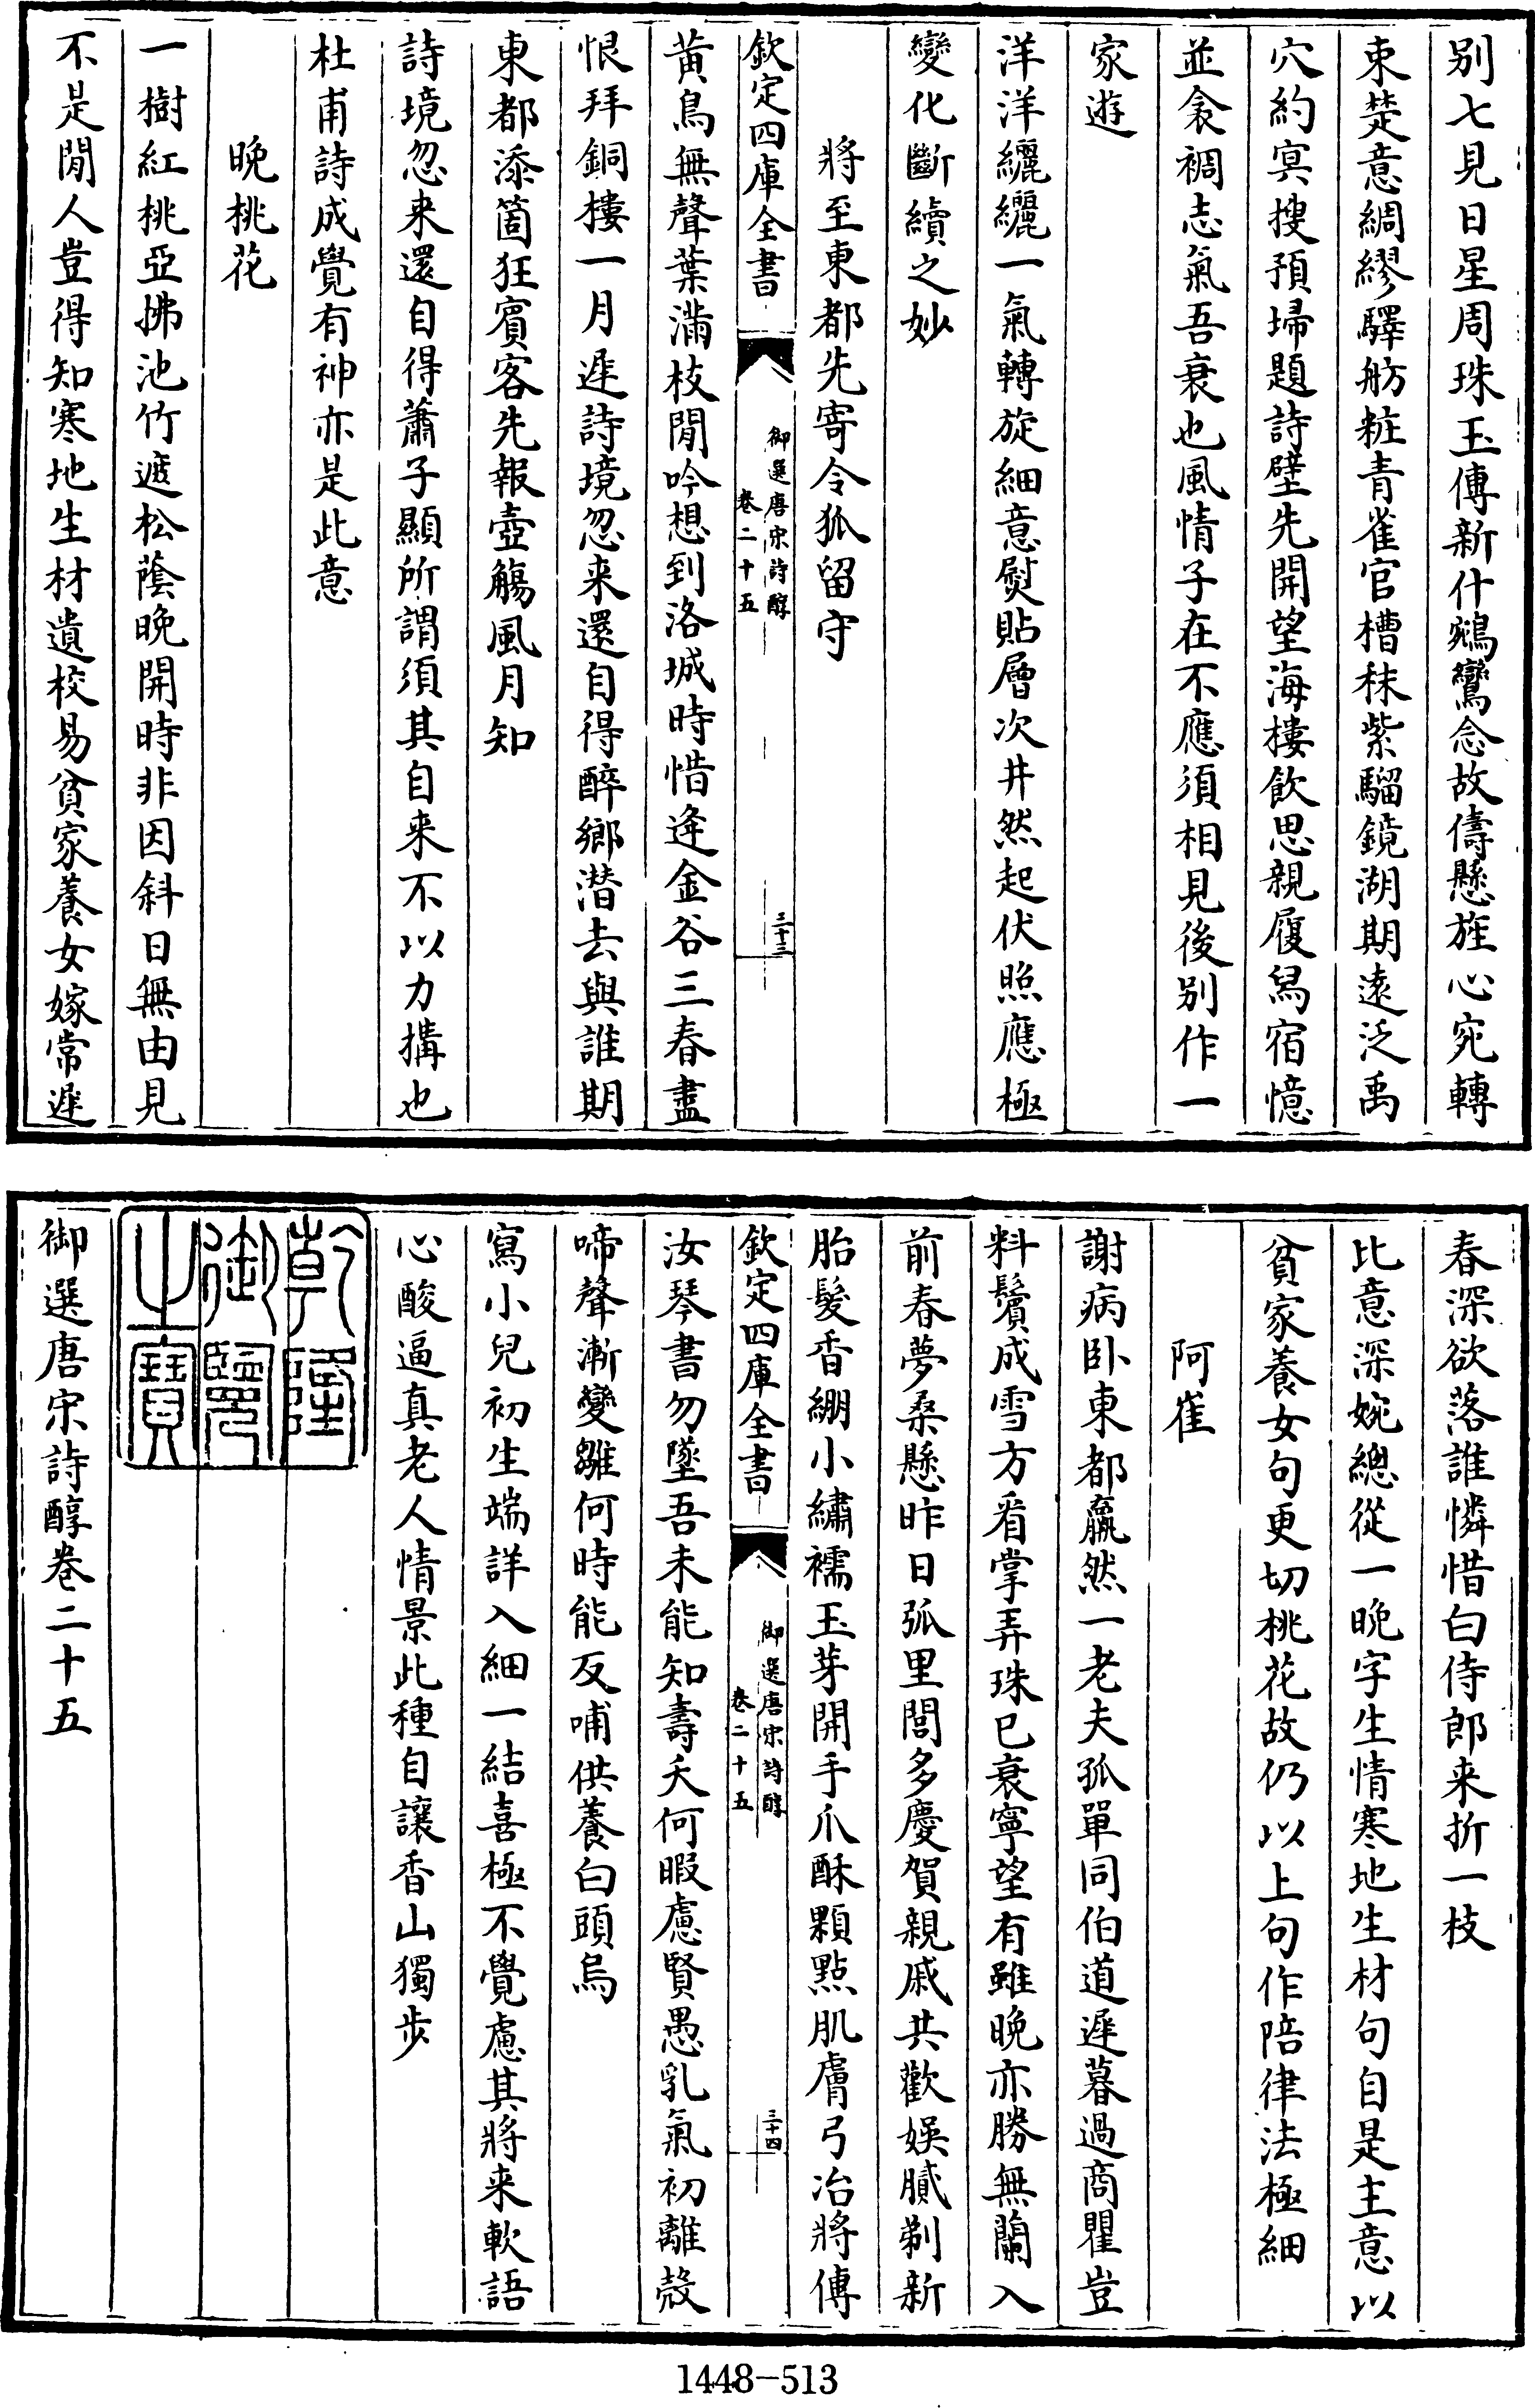 别七見日星周珠玉傳新什鵷鸞念故儔懸旌心宛轉
束楚意綢繆驛舫粧青雀官槽秣紫騮鏡湖期遠泛禹
穴約㝠搜預埽題詩壁先開望海樓飲思親履舄宿憶
並衾裯志氣吾衰也風情子在不應須相見後别作一
家遊
洋洋纚纚一氣轉旋細意熨貼層次井然起伏照應極
變化斷續之妙
將至東都先寄令狐留守
欽定四庫全書
御選唐宋詩醇
卷二十五
三十三
黄鳥無聲葉滿枝閒吟想到洛城時惜逢金谷三春盡
恨拜銅樓一月遲詩境忽来還自得醉鄉潛去與誰期
東都添箇狂賓客先報壺觴風月知
詩境忽来還自得蕭子顯所謂須其自来不以力搆也
杜甫詩成覺有神亦是此意
晚桃花
一樹紅桃亞拂池竹遮松蔭晚開時非因斜日無由見
不是閒人豈得知寒地生材遺校易貧家養女嫁常遲
春深欲落誰憐惜白侍郎来折一枝
比意深婉總從一晚字生情寒地生材句自是主意以
貧家養女句更切桃花故仍以上句作陪律法極細
阿崔
謝病卧東都羸然一老夫孤單同伯道遲暮過商瞿豈
料鬢成雪方看掌弄珠已衰寧望有雖晚亦勝無蘭入
前春夢桑懸昨日弧里閭多慶賀親戚共歡娛膩剃新
胎髮香綳小繡襦玉芽開手爪酥顆點肌膚弓冶將傳
欽定四庫全書
御選唐宋詩醇
卷二十五
三十四
汝琴書勿墜吾未能知壽夭何暇慮賢愚乳氣初離殼
啼聲漸變雛何時能反哺供養白頭烏
寫小兒初生端詳入細一結喜極不覺慮其將来軟語
心酸逼真老人情景此種自讓香山獨步
乾隆
御覽
之寶
御選唐宋詩醇卷二十五
1448-513